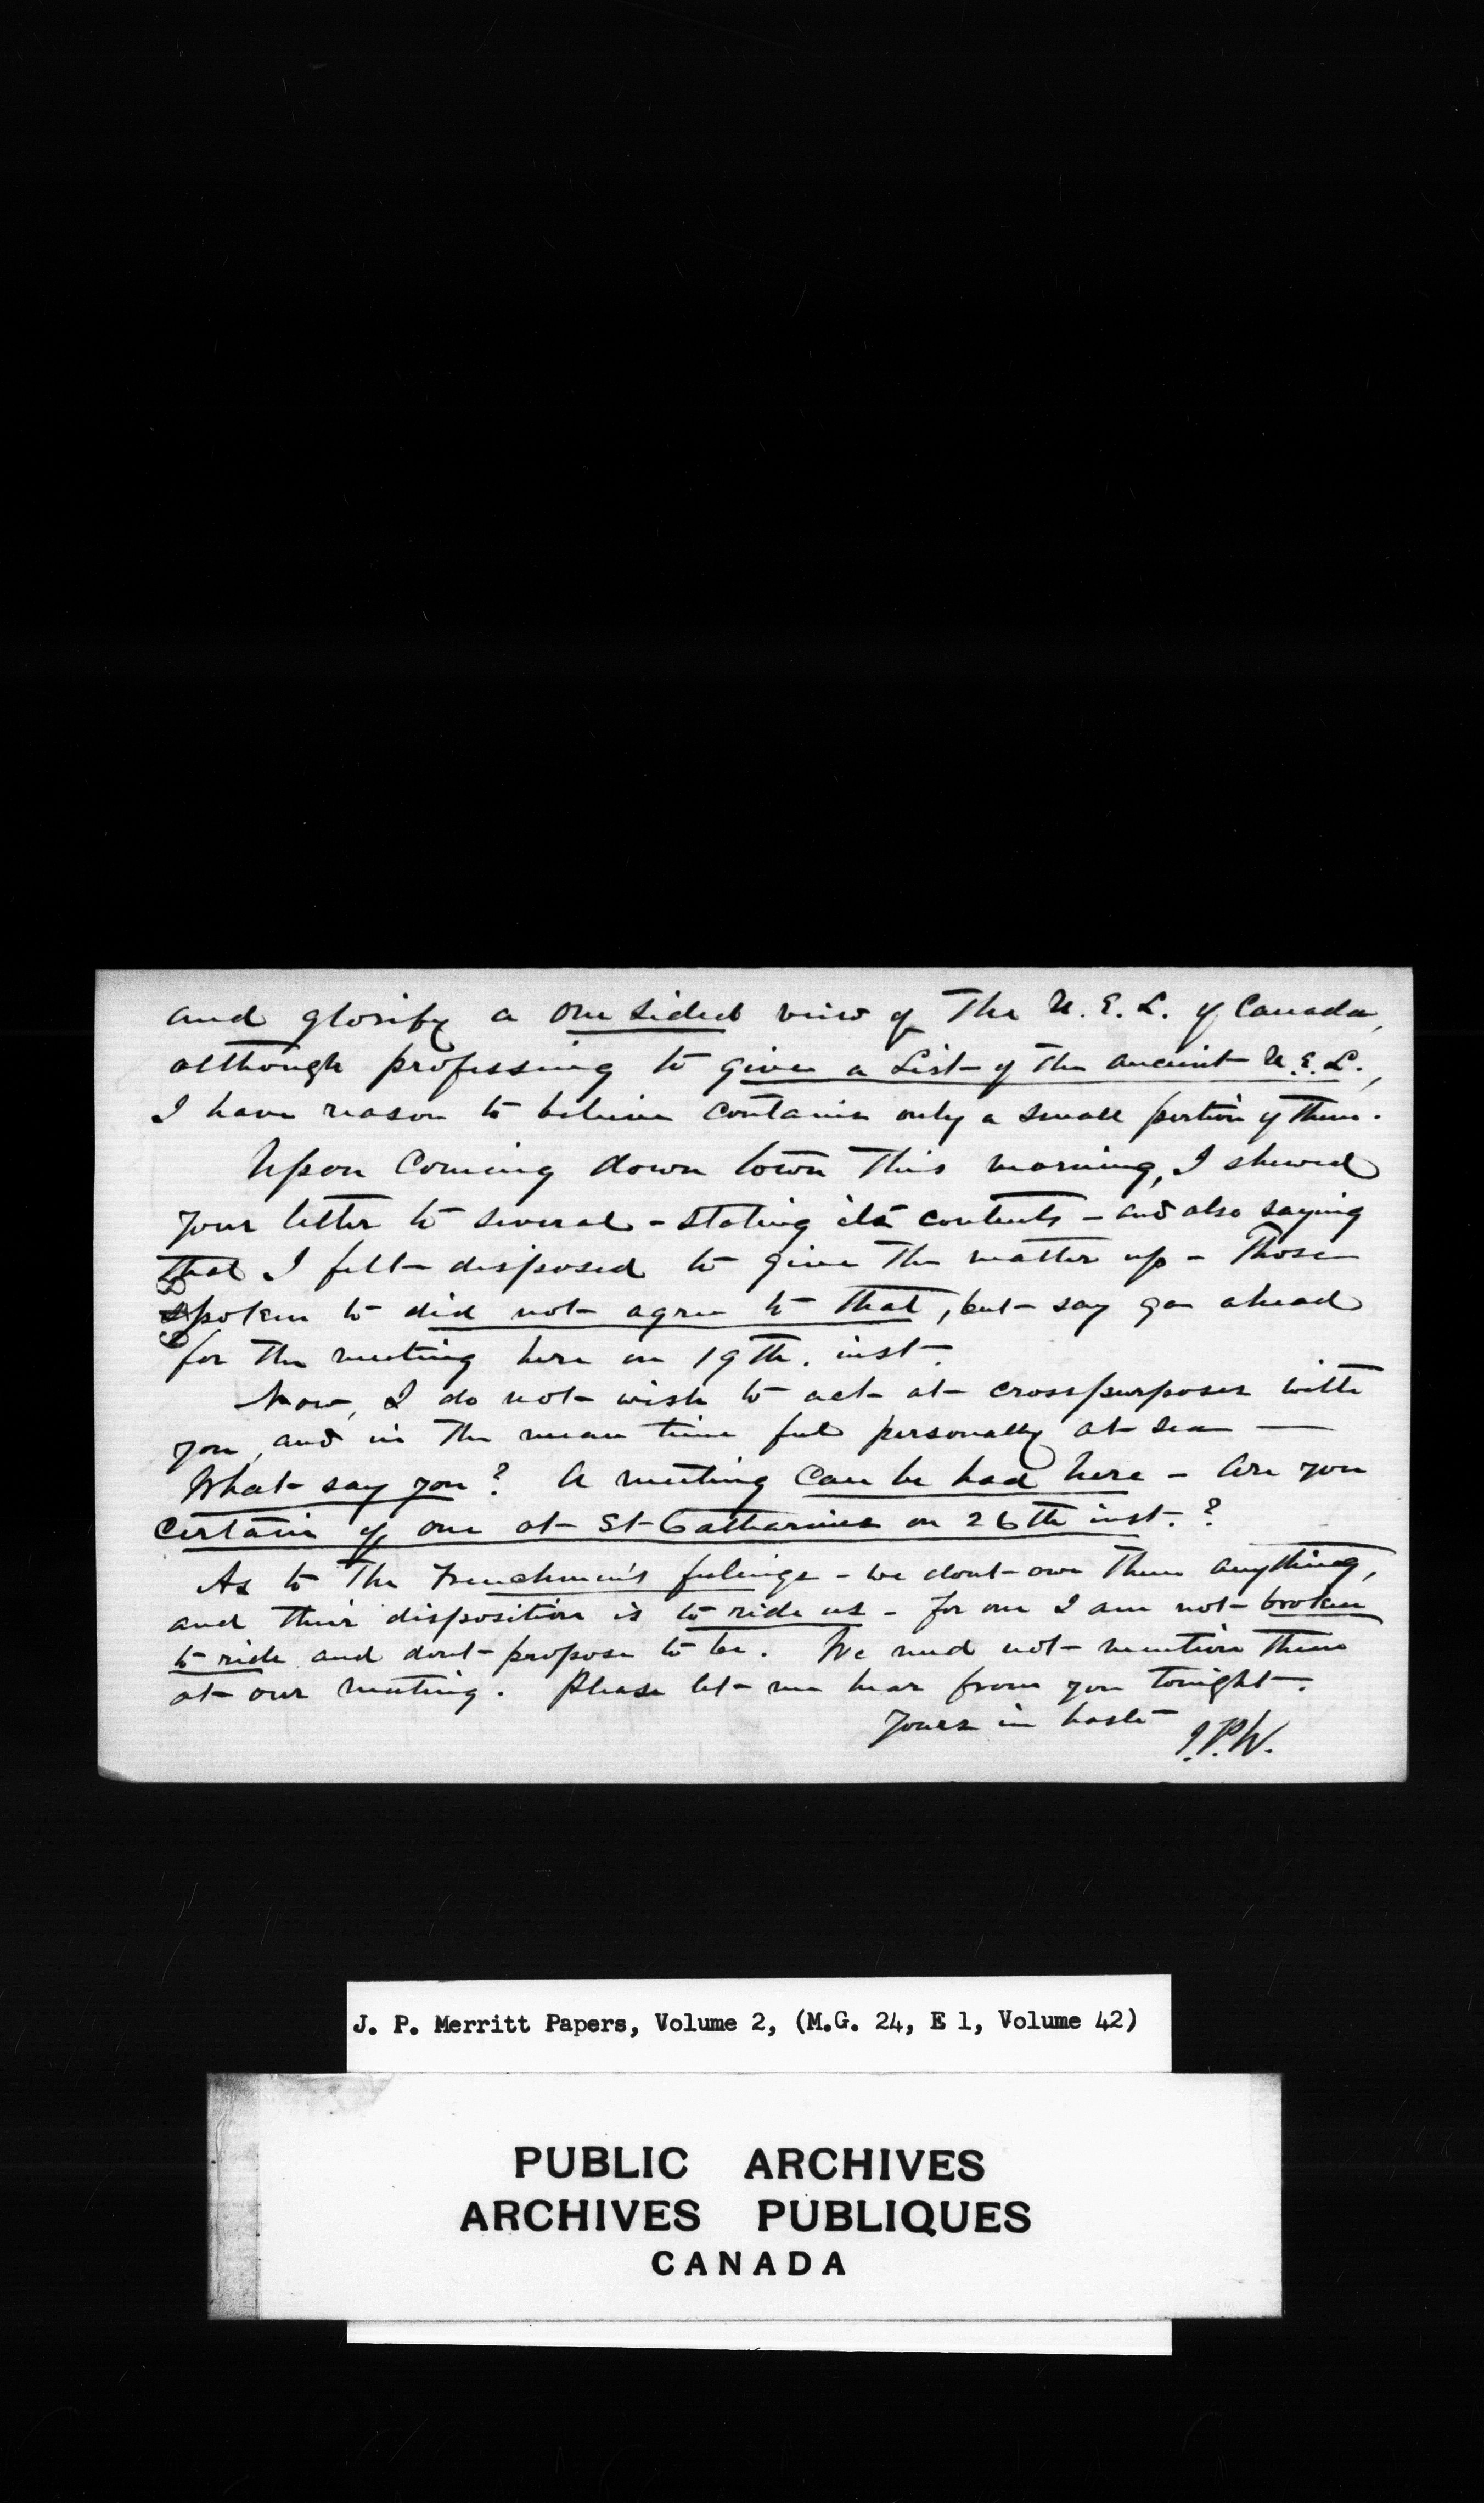 and glorify a one sided view of The U. E. L. of Canada,
although professing to give a List of the ancient U. E. L.,
I have reason to believe contains only a small portion of them.
Upon Coming down town This morning, I shewed
your letter to several - stating its contents - and also saying
that I felt disposed to give The matter up - Those
spoken to did not agree to that, but say go ahead
for The meeting here on 19th. inst.
Now, I do not wish to act at crosspurposes with
you, and in The mean time feel personally at sea —
What say you? A meeting can be had here - Are you
Certain of one at St Catharines on 26th inst.?
As to The Frenchmen's feelings - we dont owe Them anything,
and their disposition is to ride us - for one I am not broken
to ride and dont propose to be. We need not mention Them
at our meeting. Please let me hear from you tonight.
Yours in haste
J.P.W.
J. P. Merritt Papers, Volume 2, (M.G. 24, E 1, Volume 42)
PUBLIC ARCHIVES
ARCHIVES PUBLIQUES
CANADA